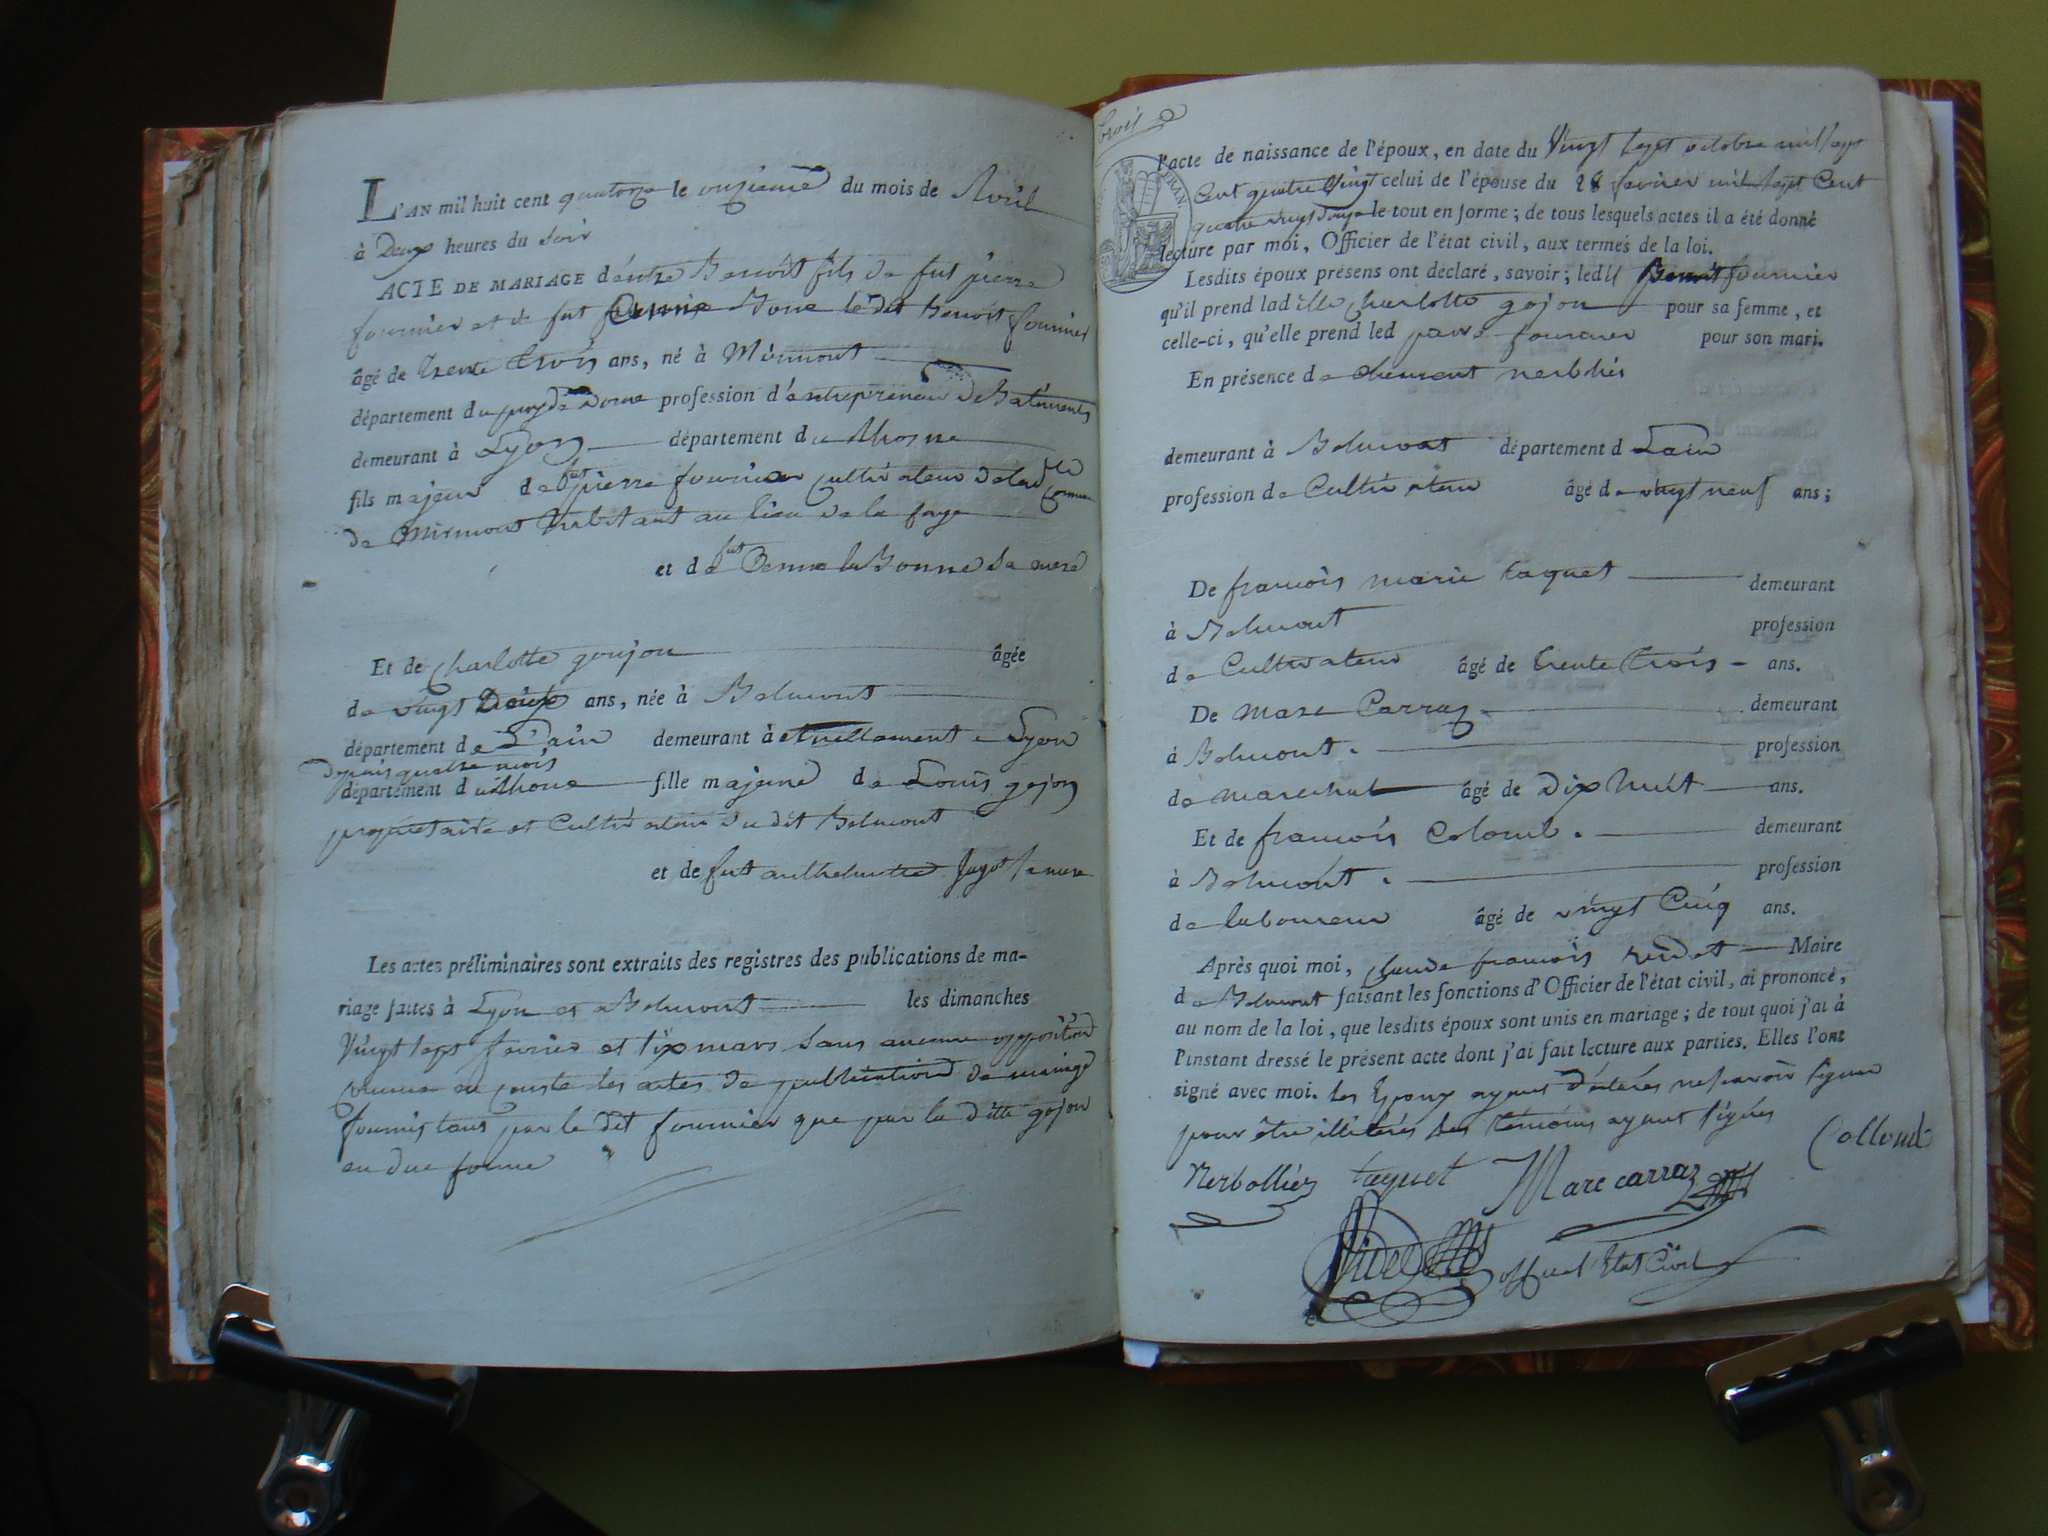 L'AN mil huit cent quatorze le onzieme du mois de Avril
à Deux heures du soir
ACTE DE MARIAGE d'entre Benoit fils de fut pierre
fournier et de fut Bone le dit Benoit fournier
âgé de trente trois ans, né à Mirmont
département du puy de Dome profession d'entrepreneur de Batiments
demeurant à Lyon département du Rhosne
fils majeur de fut pierre fournier cultivateur de la dte commune
de Mirmont habitant au lieu de la forge
et de fut Benne la Bonne sa mere
Et de charlotte goujon âgée
de vingt Deux ans, née à Belmont
département de L'ain demeurant à Lyon
depuis quatre mois
département du Rhone fille majeure de Louis gojon
proprietaire et Cultivateur du dit Belmont
et de fut anthelmette Jugot sa mere
Les actes préliminaires sont extraits des registres des publications de ma-
riage faites à Lyon et a Belmont les dimanches
Vingt sept fevrier et six mars sans aucune opposition
comme en conste les actes de publication de mariage
fournis tant par le dit fournier que par la ditte gojon
en due forme
trois
l'acte de naissance de l'époux, en date du Vingt sept octobre mil sept
Cent quatre Vingt celui de l'épouse du 28 fevrier mil sept Cent
quatre vingt douze le tout en forme; de tous lesquels actes il a été donné
lecture par moi, Officier de l'état civil, aux termes de la loi.
Lesdits époux présens ont déclaré, savoir; ledit Benoit fournier
qu'il prend ladite charlotte gojon pour sa femme, et
celle-ci, qu'elle prend led fournier pour son mari.
En présence de
demeurant à Belmont département d Lain
profession de Cultivateur âgé de vingt neuf ans;
De francois marie taquet demeurant
à Belmont profession
de Cultivateur âgé de trente trois ans.
De Marc Carraz demeurant
à Belmont profession
de marechal âgé de Dix huit ans.
Et de francois Colomb demeurant
à Belmont profession
de laboureur âgé de vingt Cinq ans.
Après quoi moi, claude francois Maire
de Belmont faisant les fonctions d'Officier de l'état civil, ai prononcé,
au nom de la loi, que lesdits époux sont unis en mariage; de tout quoi j'ai à
l'instant dressé le présent acte dont j'ai fait lecture aux parties. Elles l'ont
signé avec moi. les Epoux ayant déclarés ne savoir signer
pour être illitérés les temoins ayant signés
Nerbollier taquet Marc carraz Collomb
officier Etat Civil